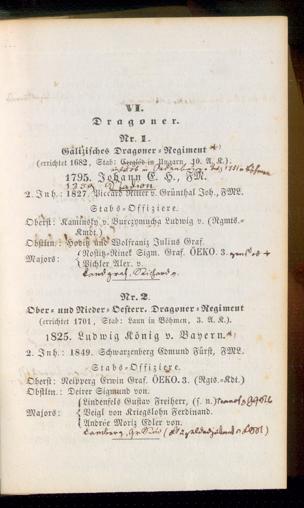 VI.
Dragoner.
Nr. 1.
Galizisches Dragoner-Regiment
(errichtet 1682, Stab: Czegléd in Ungarn, 10. A. K.).
1795. Johann E. H., FM.
2. Inh.: 1827. Piccard Ritter v. Grünthal Joh., FML.
Stabs-Offiziere.
Oberst: Kaminsky v. Burczymucha Ludwig v. (Rgmts.-
Kmdt.)
Obstltn.: Hoditz und Wolframiz Julius Graf.
Majors: Nostitz-Rinek Sigm. Graf. ÖEKO. 3.
Pichler Alex. v.
Nr. 2.
Ober- und Nieder-Oesterr. Dragoner-Regiment
(errichtet 1701, Stab: Laun in Böhmen, 3. A. K.).
1825. Ludwig König v. Bayern.
2. Inh.: 1849. Schwarzenberg Edmund Fürst, FML.
Stabs-Offiziere.
Oberst: Neipperg Erwin Graf. ÖEKO. 3. (Rgts.-Kdt.)
Obstltn.: Sigmund von.
Lindenfels Gustav Freiherr, (s. n.)
Majors: Veigl von Kriegslohn Ferdinand.
Andrée Moriz Edler von.